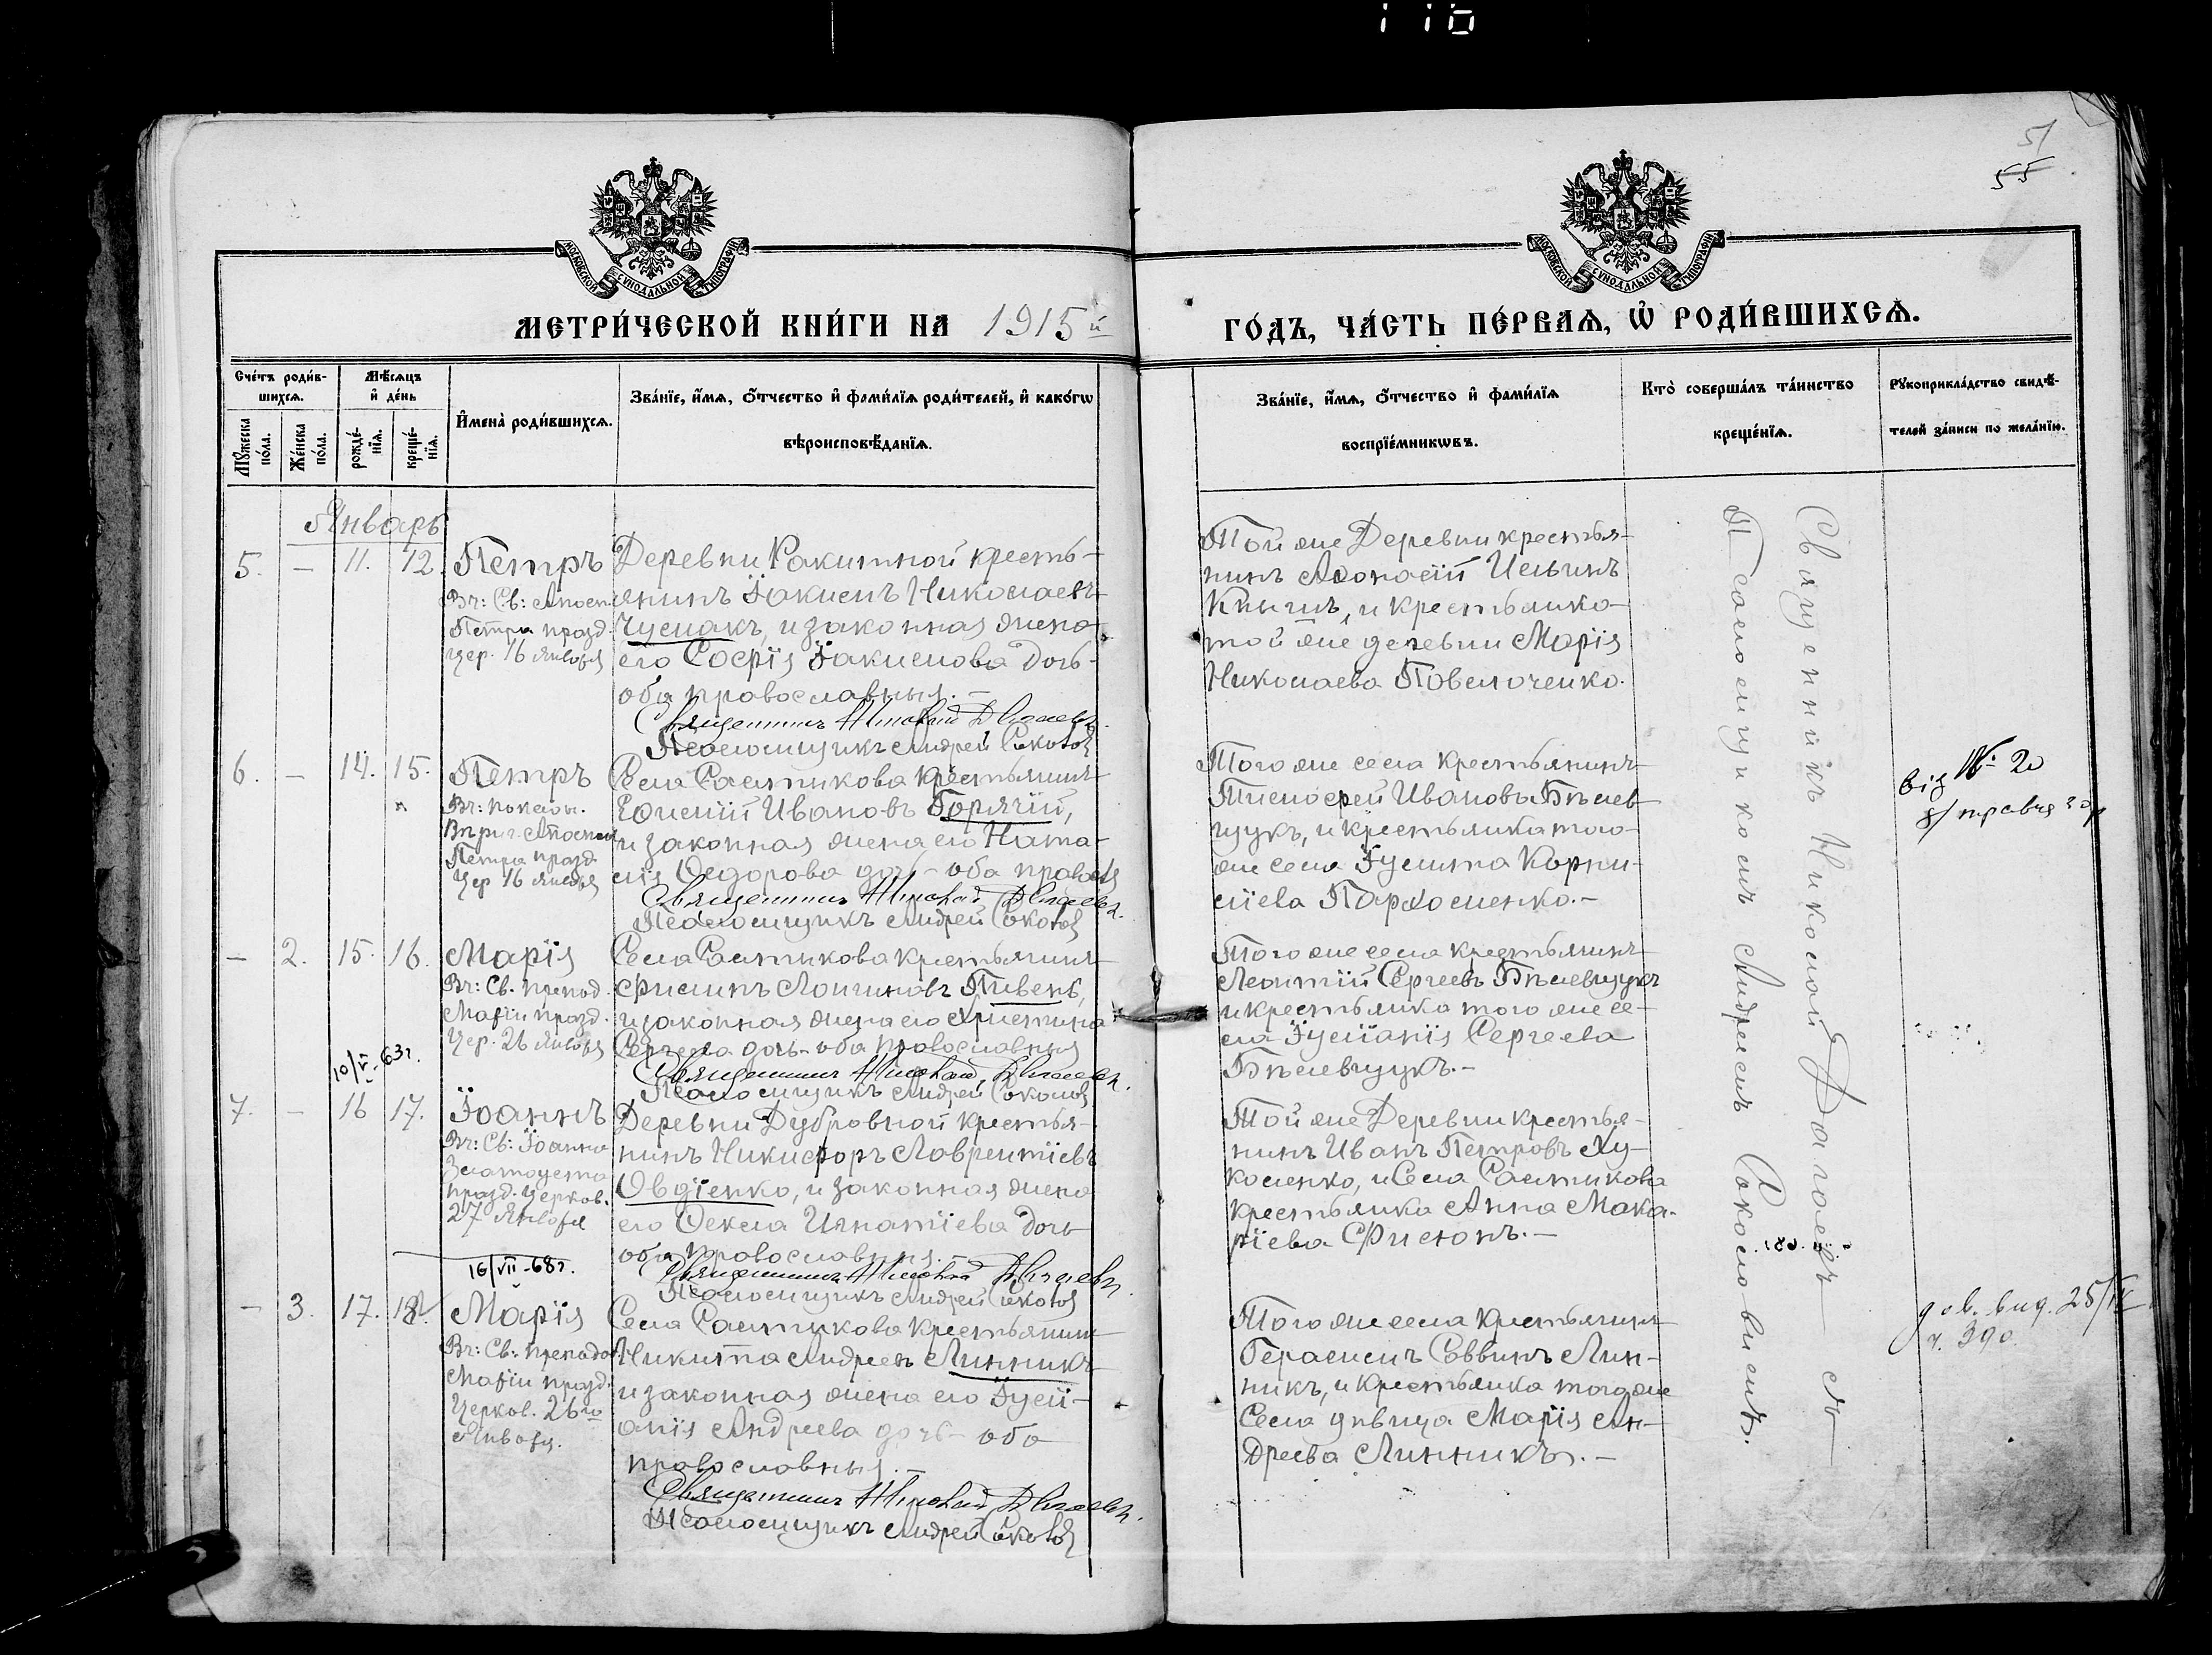 116
51
55
МОСКОВСКОЙ СѴНОДАЛЬНОЙ ТИПОГРАФІИ
МОСКОВСКОЙ СѴНОДАЛЬНОЙ ТИПОГРАФІИ
МЕТРИ́ЧЕСКОЙ КНИ́ГИ НА 1915й
ГО́ДЪ, ЧА́СТЬ ПЕ́РВАЯ, Ѡ РОДИ́ВШИХСЯ.
Сче́тъ роди́в-
шихся.
Мѣ́сяцъ
и де́нь
Му́жеска
по́ла.
Же́нска
по́ла.
рожде́-
нія.
креще́-
нія.
Имена̀ роди́вшихся.
Зва́ніе, и́мя, о́тчество и фами́лія роди́телей, и како́гѡ
вѣроисповѣ́данія.
Зва́ніе, и́мя, о́тчество и фами́лія
воспріе́мникѡвъ.
Кто̀ соверша́лъ та́инство
креще́нія.
Рꙋкоприкла́дство свидѣ́-
телей за́писи по жела́нію.
Январь
5. — 11. 12. Петръ
Въ: Св: Апост
Петра празд.
цер. 16 Января
Деревни Ракитной кресть-
янинъ Іакимъ Николаевъ
Чумакъ, и законная жена
его Софія Іакимова дочь-
оба православныя. —
Священникъ Николай
Псаломщикъ Андрей Соколов
Той же Деревни крестья-
нинъ Афонасій Ильинъ
и крестьянка
той же деревни Марія
Николаева Павлюченко.
6. — 14. 15. Петръ
Петра празд
Цер 16 Января
Села Салтикова крестьянинъ
Ивановъ Горячій,
и законная жена его Ната-
лія Федорова дочь - оба правосл
Священникъ Николай
Псаломщикъ Андрей Соколов
Того же села крестьянинъ
Тимофей Ивановъ Бѣлев-
цукъ, и крестьянка того-
же села Іулитта Корни-
лієва Пархоменко. —
від № 20
травня
— 2. 15. 16. Марія
Въ: Св. препод.
Маріи празд.
Цер. 26 Января
Села Салтикова крестьянинъ
Филипъ Логиновъ Пивень,
и законная жена его Христина
Сергеева дочь - оба православныя
Священникъ Николай
Псаломщикъ Андрей Соколов
Того же села крестьянинъ
Леонтій Сергеевъ Бѣлевцукъ
и крестьянка того же се-
ла Іуліанія Сергеева
Бѣлевцукъ. —
10/V-63г.
7. — 16 17. Іоаннъ
Въ: Св: Іоанна
Златоуста
празд. церков.
27 Января
Деревни Дубровной крестья-
нинъ Никифоръ Лаврентіевъ
Овдіенко, и законная жена
его Фекла Игнатіева дочь
оба православныя. —
Священникъ Николай
Псаломщикъ Андрей Соколов
Той же Деревни крестья-
нинъ Иванъ Петровъ
и Села Салтикова
крестьянка Анна Мака-
ріева Филонъ. —
16/VII-68г.
— 3. 17. 18. Марія
Въ: Св: преподоб
Маріи празд.
Церков. 26го
Января.
Села Салтикова крестьянинъ
Никита Андреевъ Линникъ
и законная жена его Іулі-
анія Андреева дочь - оба
православныя. —
Священникъ Николай
Псаломщикъ Андрей Соколов
Того же села крестьянинъ
Герасимъ Саввинъ Лин-
никъ, и крестьянка того же
Села дѣвица Марія Ан-
дреева Линникъ. —
дов. вид. 25/IX
ч. 390
Священникъ Николай — съ —
Псаломщикомъ Андреемъ Соколовимъ.